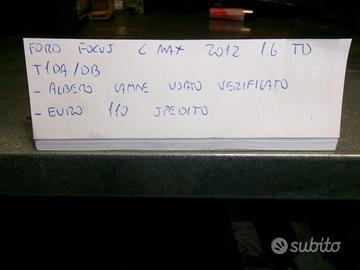 FORD FOCUS C MAX 2012 1.6 TD
T1DA/DB
- ALBERO CAMNE USATO VERIFICATO
- EURO 110 SPEDITO
subito